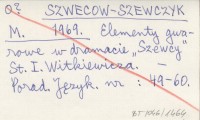 SZWECOW-SZEWCZYK
M. 1969. Elementy gwa-
rowe w dramacie „Szewcy"
St. I. Witkiewicza. —
Porad. Język. nr : 49-60.